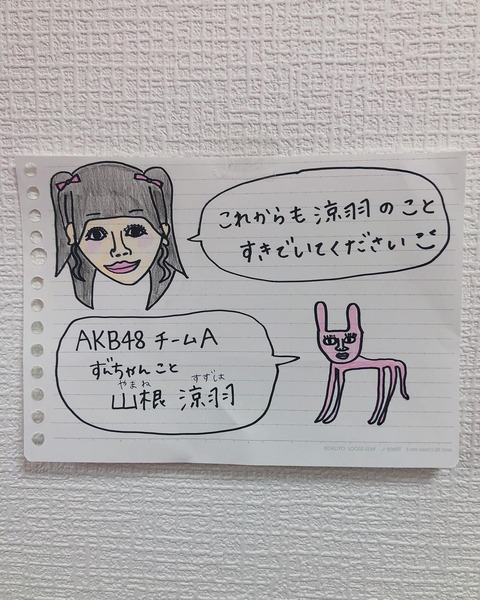 これからも涼羽のこと
すきでいてくださいご
AKB48 チームA
ずんちゃんこと
やまね すずは
山根 涼羽